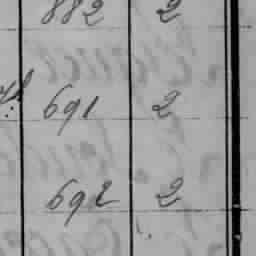 882 2
691 2
692 2